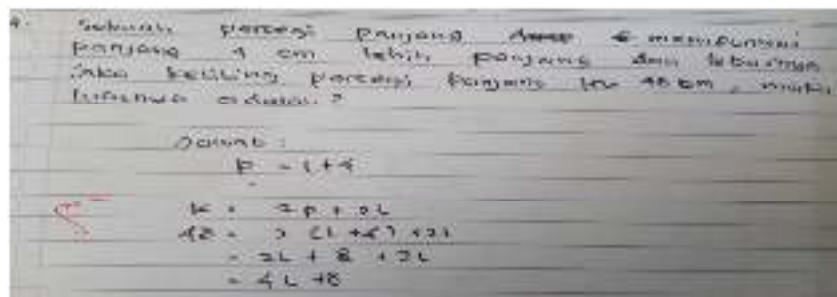 4. Sebuah persegi panjang mempunyai
panjang 4 cm lebih panjang dari lebarnya
jika keliling persegi panjang 48 cm, maka
luasnya adalah ?
Jawab :
P = l + 4
K = 2p + 2L
48 = 2 (L + 4) + 2L
= 2L + 8 + 2L
= 4L + 8